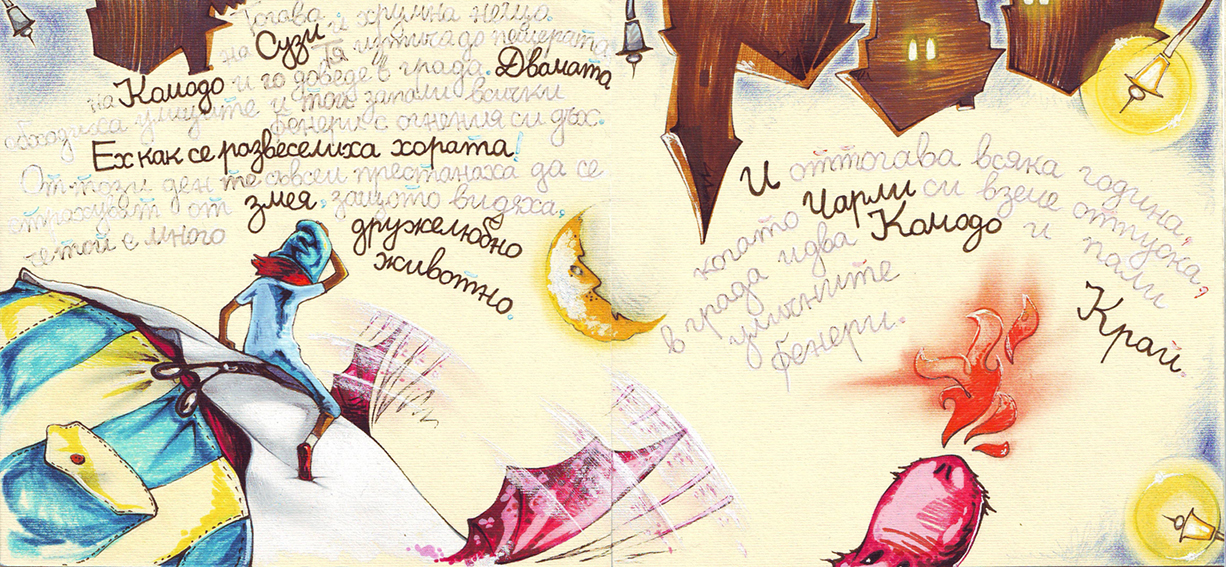 Тогава и хрумна нещо.
на Сузи Тя изтича до пещерата
на Камодо и го доведе в града. Двамата
обходиха улиците и той запали всички
фенери с огнения си дъх.
Ех как се развеселиха хората!
От този ден те съвсем престанаха да се
страхуват от змея, защото видяха,
че той е много дружелюбно
животно.
И оттогава всяка година,
когато Чарли си вземе отпуска,
в града идва Камодо и пали
уличните
фенери.
Край.